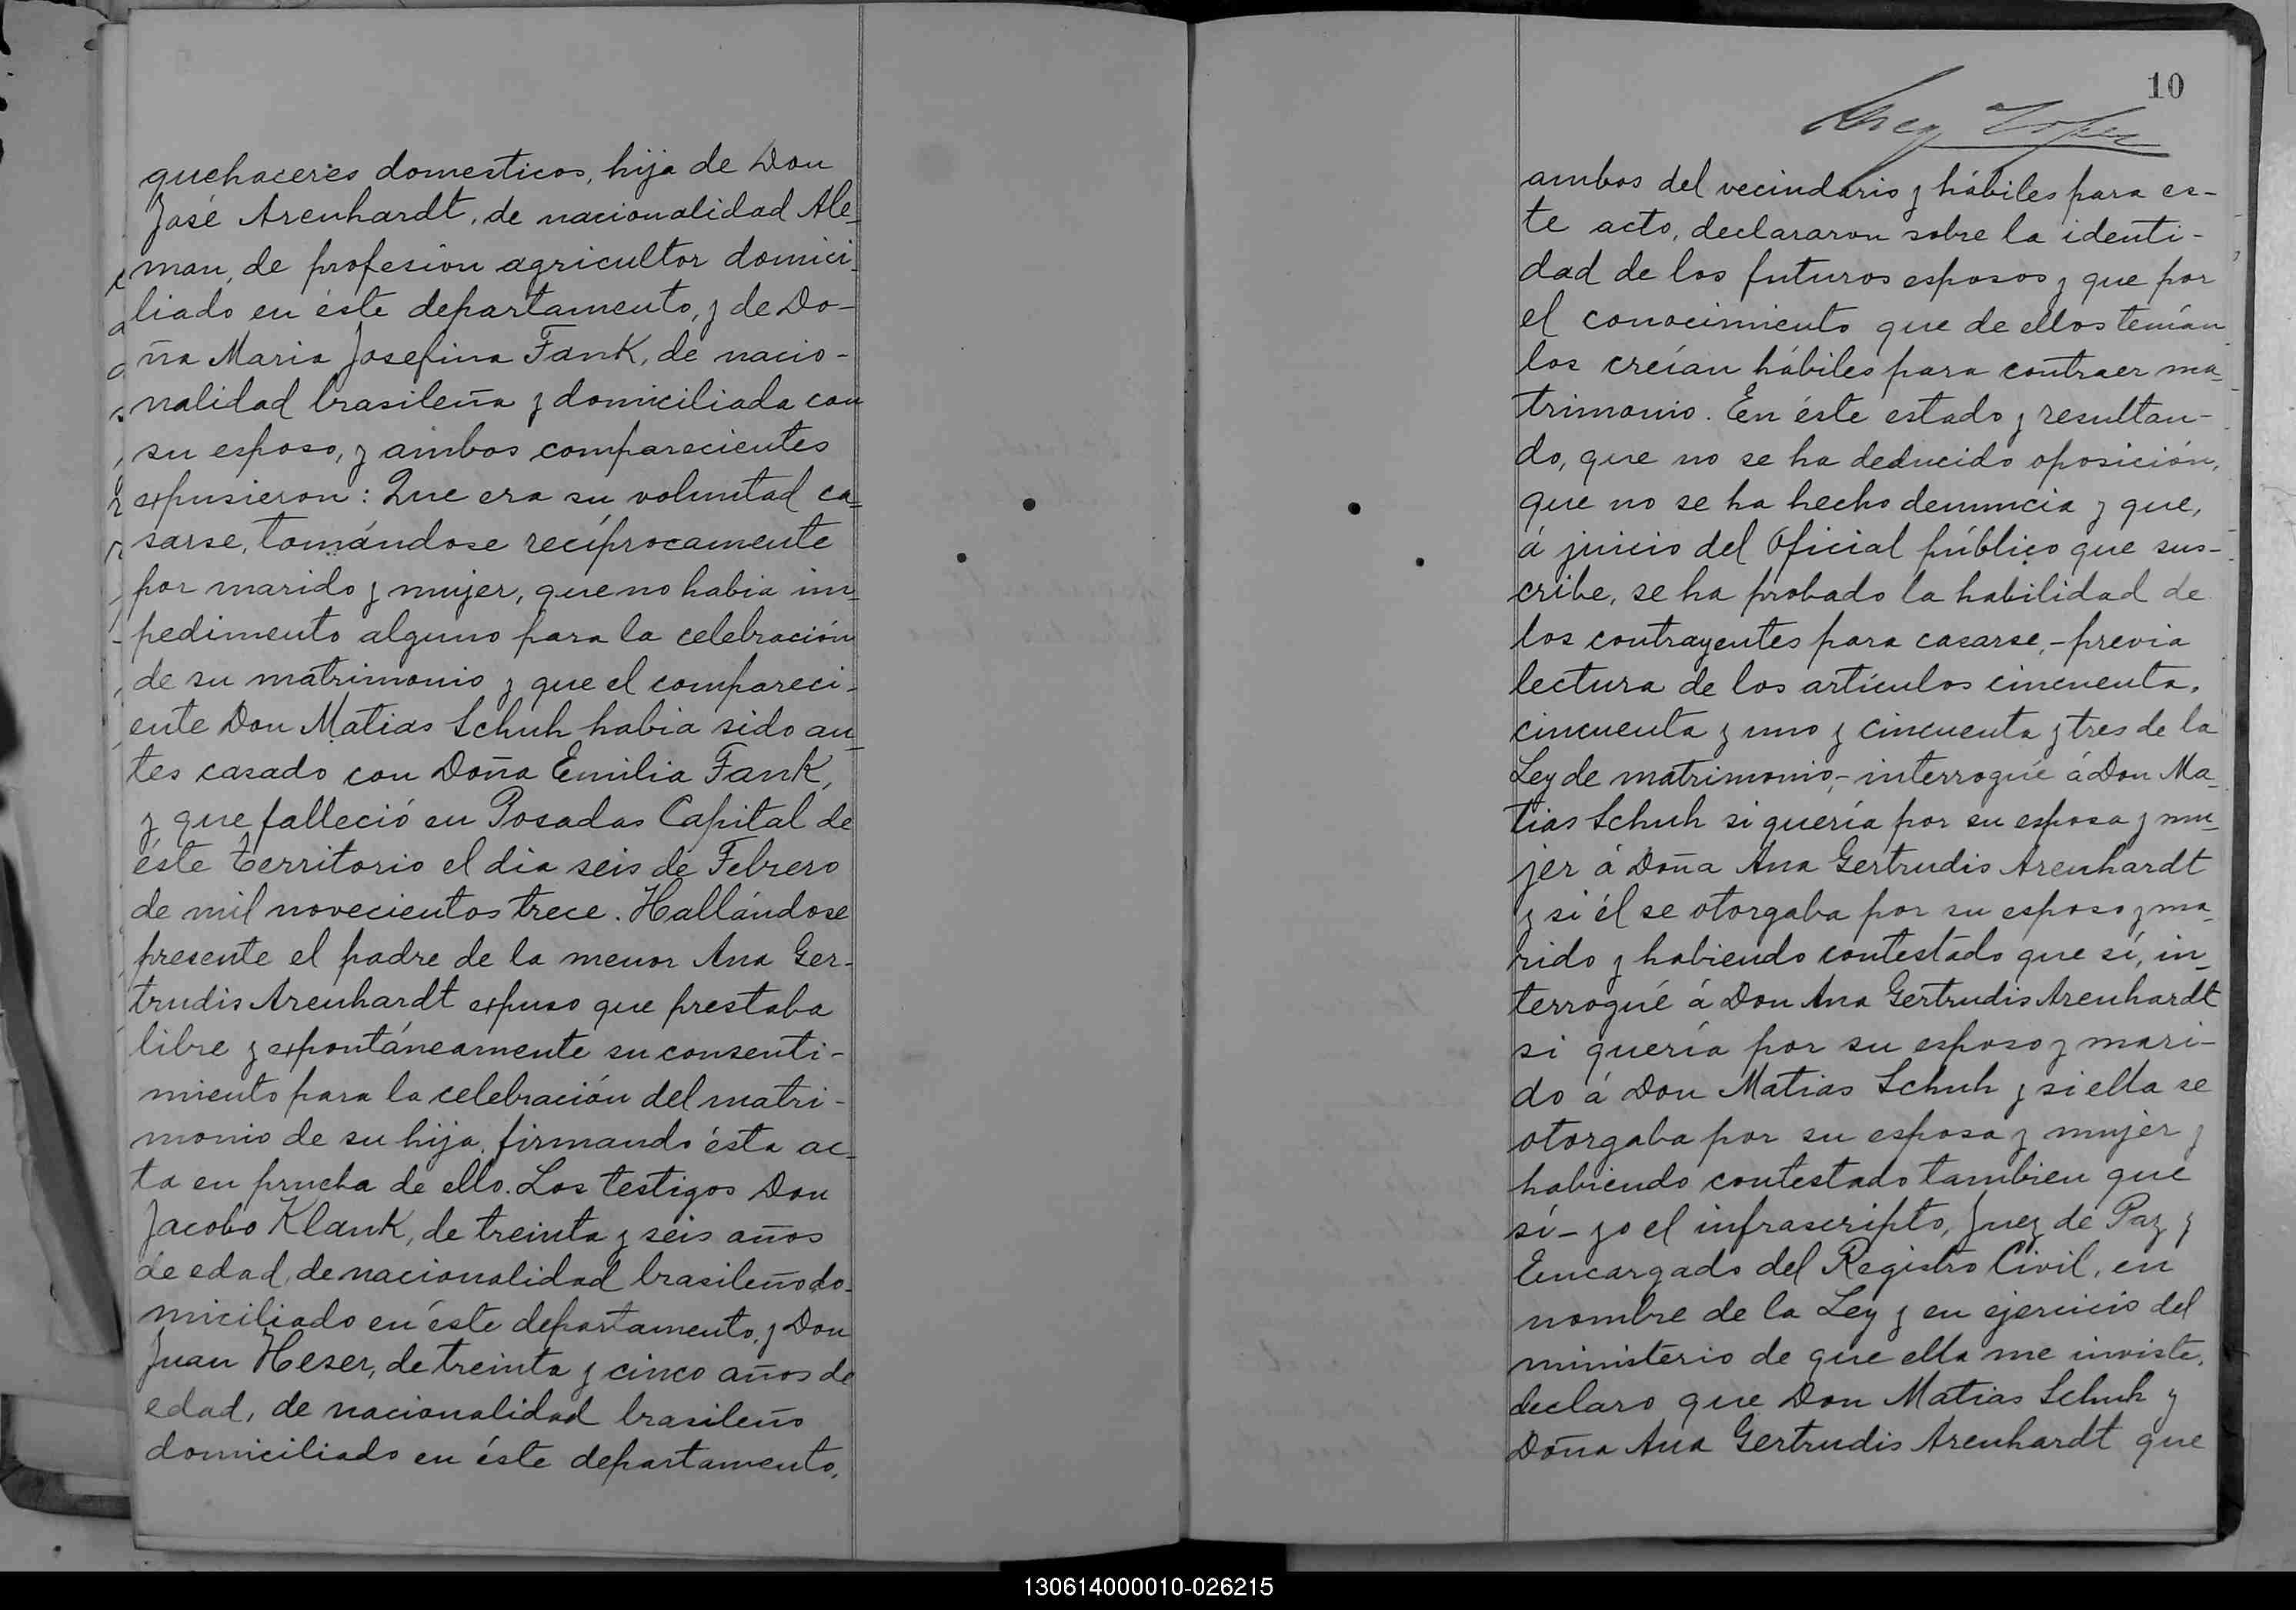 quehaceres domesticos, hija de Don
José Arenhardt, de nacionalidad Ale-
man, de profesion agricultor domici-
liado en éste departamento, y de Do-
ña Maria Josefina Fank, de nacio-
nalidad brasileña y domiciliada con
su esposo, y ambos comparecientes
expusieron: Que era su voluntad ca-
sarse, tomándose recíprocamente
por marido y mujer, que no habia im-
pedimento alguno para la celebración
de su matrimonio y que el compareci-
ente Don Matias Schuh habia sido an-
tes casado con Doña Emilia Fank,
y que falleció en Posadas Capital de
éste territorio el dia seis de Febrero
de mil novecientos trece. Hallándose
presente el padre de la menor Ana Ger-
trudis Arenhardt expuso que prestaba
libre y expontáneamente su consenti-
miento para la celebración del matri-
monio de su hija, firmando ésta ac-
ta en prueba de ello. Los testigos Don
Jacobo Klank, de treinta y seis años
de edad, de nacionalidad brasileño do-
miciliado en éste departamento, y Don
Juan Heser, de treinta y cinco años de
edad, de nacionalidad brasileño
domiciliado en éste departamento,
10
ambos del vecindario y hábiles para es-
te acto, declararon sobre la identi-
dad de los futuros esposos y que por
el conocimiento que de ellos tenían
los creían hábiles para contraer ma-
trimonio. En éste estado y resultan-
do, que no se ha deducido oposición,
que no se ha hecho denuncia y que,
á juicio del Oficial público que sus-
cribe, se ha probado la habilidad de
los contrayentes para casarse,- previa
lectura de los artículos cincuenta,
cincuenta y uno y cincuenta y tres de la
Ley de matrimonio,- interrogué á Don Ma-
tias Schuh si quería por su esposa y mu-
jer á Doña Ana Gertrudis Arenhardt
y si él se otorgaba por su esposo y ma-
rido y habiendo contestado que sí, in-
terrogué á Don Ana Gertrudis Arenhardt
si quería por su esposo y mari-
do á Don Matias Schuh y si ella se
otorgaba por su esposa y mujer y
habiendo contestado tambien que
sí - yo el infrascripto, Juez de Paz y
Encargado del Registro Civil, en
nombre de la Ley y en ejercicio del
ministerio de que ella me inviste,
declaro que Don Matias Schuh y
Doña Ana Gertrudis Arenhardt que
130614000010-026215